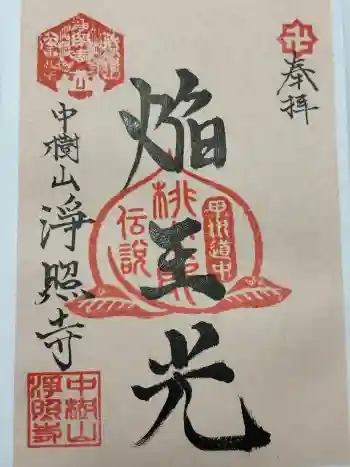 奉拝
焔王光
甲州道中
桃太郎
伝説
中樹山
淨照寺
中樹山
淨照寺